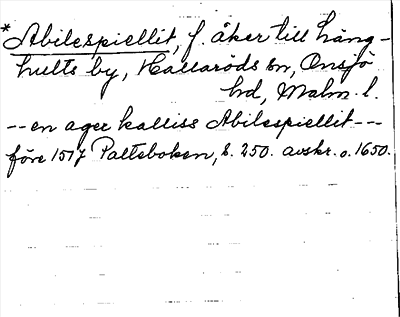 *Abilespiellit, f. åker till Häng-
hults by, Hallaröds sn, Onsjö
hd, Malm. l.
-- en ager kalliss Abilespiellit ---
före 1517 Palteboken, s. 250. avskr. o. 1650.